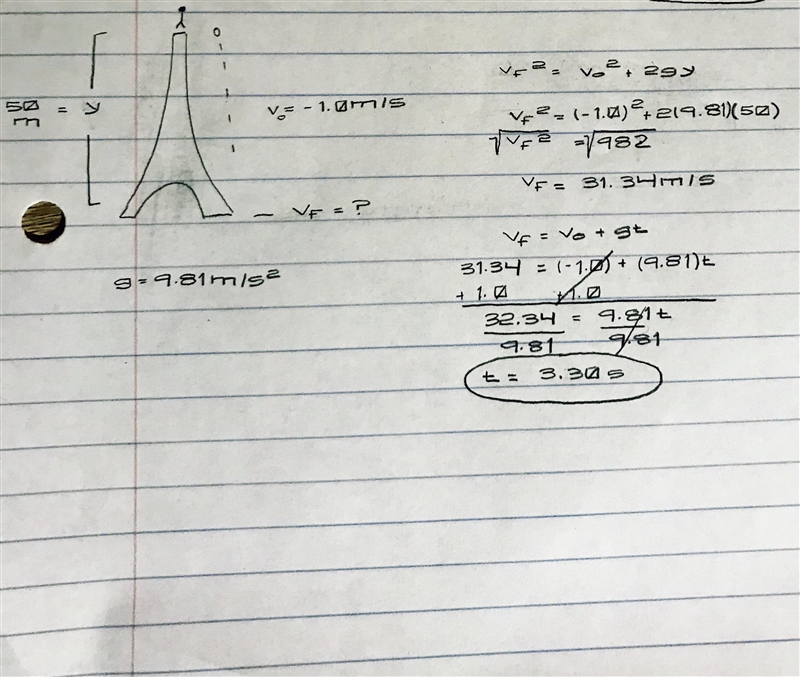 50 m = y
v₀ = -1.0m/s
v_F = ?
g = 9.81m/s²
v_F² = v₀² + 2gy
v_F² = (-1.0)² + 2(9.81)(50)
√v_F² = √982
v_F = 31.34m/s
v_F = v₀ + gt
31.34 = (-1.0) + (9.81)t
+ 1.0 +1.0
32.34 = 9.81t
9.81 9.81
t = 3.30s